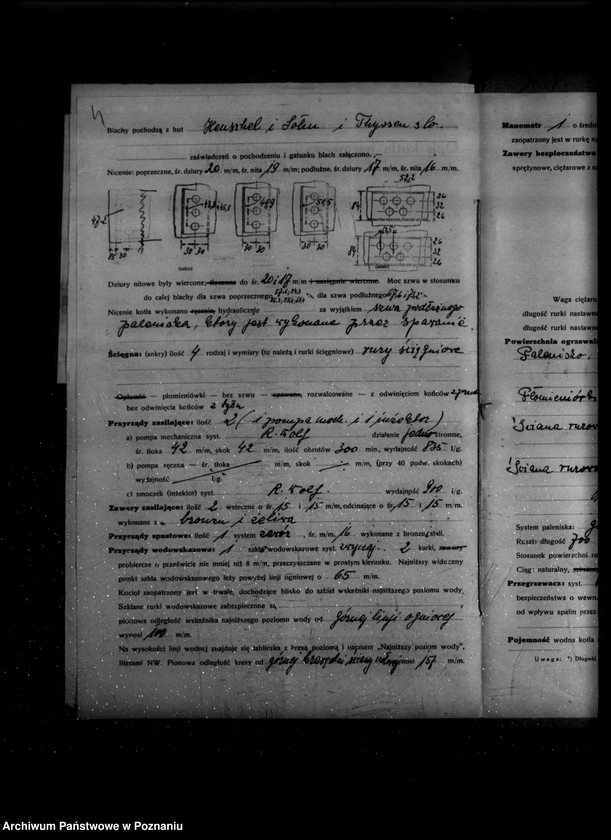 Blachy pochodzą z hut Henschel i Sohn i Thyssen s Co.
zaświadczeń o pochodzeniu i gatunku blach załączono.
Nicenie: poprzeczne, śr. dziury 20 m/m, śr. nita 19 m/m; podłużne, śr. dziury 17 m/m, śr. nita 16 m/m.
52,2
47.2
84
26
32
26
30 30
30 30
30 30
84
26
32
26
Dziury nitowe były wiercone, tłoczone do śr. 20 i 17 m/m i następnie wiercone. Moc szwu w stosunku
do całej blachy dla szwa poprzecznego %, dla szwa podłużnego
Nicenie kotła wykonano ręcznie hydraulicznie za wyjątkiem szwa podłużnego
paleniska, który jest wykonane przez spawanie
Ściągna: (ankry) ilość 4 rodzaj i wymiary (tu należą i rurki ściągniowe) rury ściągniowe
Opłomki — płomieniówki — bez szwu — spawane, rozwalcowane — z odwinięciem końców z przodu
bez odwinięcia końców z tyłu
Przyrządy zasilające: ilość 2 (1 pompa mech. i 1 inżektor)
a) pompa mechaniczna syst. R. Wolf działanie jednostronne,
śr. tłoka 42 m/m, skok 42 m/m, ilość obrotów 300 min, wydajność 835 l/g.
b) pompa ręczna — śr. tłoka m/m, skok m/m, (przy 40 podw. skokach)
wydajność l/g.
c) smoczek (inżektor) syst. R. Wolf. wydajność 900 l/g.
Zawory zasilające: ilość 2 wsteczne o śr. 15 i 15 m/m, odcinające o śr. 15 i 15 m/m,
wykonane z bronzu i żeliwa
Przyrządy spustowe: ilość 1 system zawór, śr. m/m, 16 wykonane z bronzu, stali.
Przyrządy wodowskazowe: 1 szkła wodowskazowe syst. zwycz. 2 kurki, zawory
probiercze o prześwicie nie mniej niż 8 m/m, przeczyszczane w prostym kierunku. Najniższy widoczny
punkt szkła wodowskazowego leży powyżej linji ogniowej o 65 m/m.
Kocioł zaopatrzony jest w trwałe, dochodzące blisko do szkieł wskaźniki najniższego poziomu wody.
Szklane rurki wodowskazowe zabezpieczone są
pionowa odległość wskaźnika najniższego poziomu wody od górnej linji ogniowej
wynosi 100 m/m.
Na wysokości linji wodnej znajduje się tabliczka z kresą poziomą i napisem „Najniższy poziom wody",
literami NW. Pionowa odległość kresy od górnej krawędzi wynosi 157 m/m.
Manometr 1 o średn
zaopatrzony jest w rurkę sy
Zawory bezpieczeństwa
sprężynowe, ciężarowe z na
Waga ciężaru
długość rurki nastawne
długość rurki nastawne
Powierzchnia ogrzewal
Palenisko,
Płomieniówk
Ściana rurow
Ściana rurowa
System paleniska:
Ruszt: długość 700
Stosunek powierzchni ru
Ciąg: naturalny,
Przegrzewacz: syst.
bezpieczeństwa o wewn.
od wpływu spalin przez
Pojemność wodna kotła
Uwaga: *) Długość
Archiwum Państwowe w Poznaniu